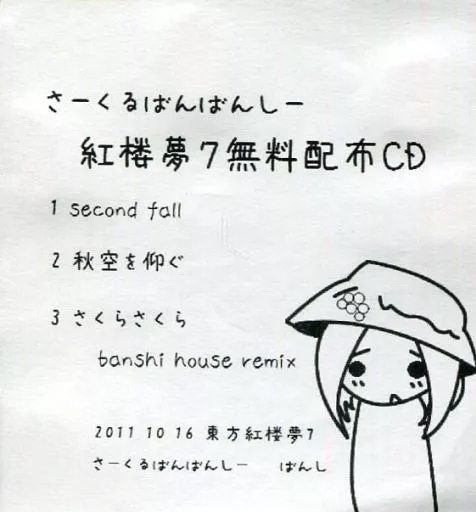 さーくるばんばんしー
紅楼夢7無料配布CD
1 second fall
2 秋空を仰ぐ
3 さくらさくら
banshi house remix
2011 10 16 東方紅楼夢7
さーくるばんばんしー ばんし